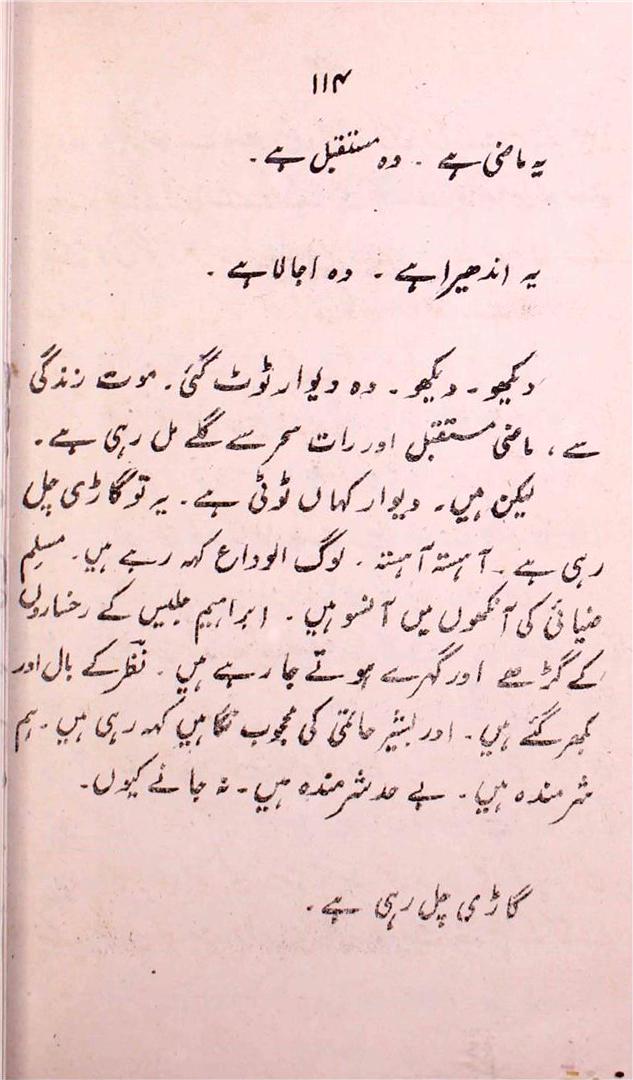 ۱۱۴
یہ ماضی ہے ۔ وہ مستقبل ہے ۔
یہ اندھیرا ہے ۔ وہ اجالا ہے ۔
دیکھو ۔ دیکھو ۔ وہ دیوار ٹوٹ گئی ۔ موت زندگی
سے ، ماضی مستقبل اور رات سحر سے گلے مل رہی ہے ۔
لیکن ہیں ۔ دیوار کہاں ٹوٹی ہے ۔ یہ تو گاڑی چل
رہی ہے ۔ آہستہ آہستہ ۔ لوگ الوداع کہہ رہے ہیں ۔ مسلم
ضیائی کی آنکھوں میں آنسو ہیں ۔ ابراہیم جلیس کے رخساروں
کے گڑھے اور گہرے ہوتے جا رہے ہیں ۔ نظرؔ کے بال اور
بکھر گئے ہیں ۔ اور بشیر حاتمی کی محجوب نگاہیں کہہ رہی ہیں ۔ ہم
شرمندہ ہیں ۔ بے حد شرمندہ ہیں ۔ نہ جانے کیوں ۔
گاڑی چل رہی ہے ۔